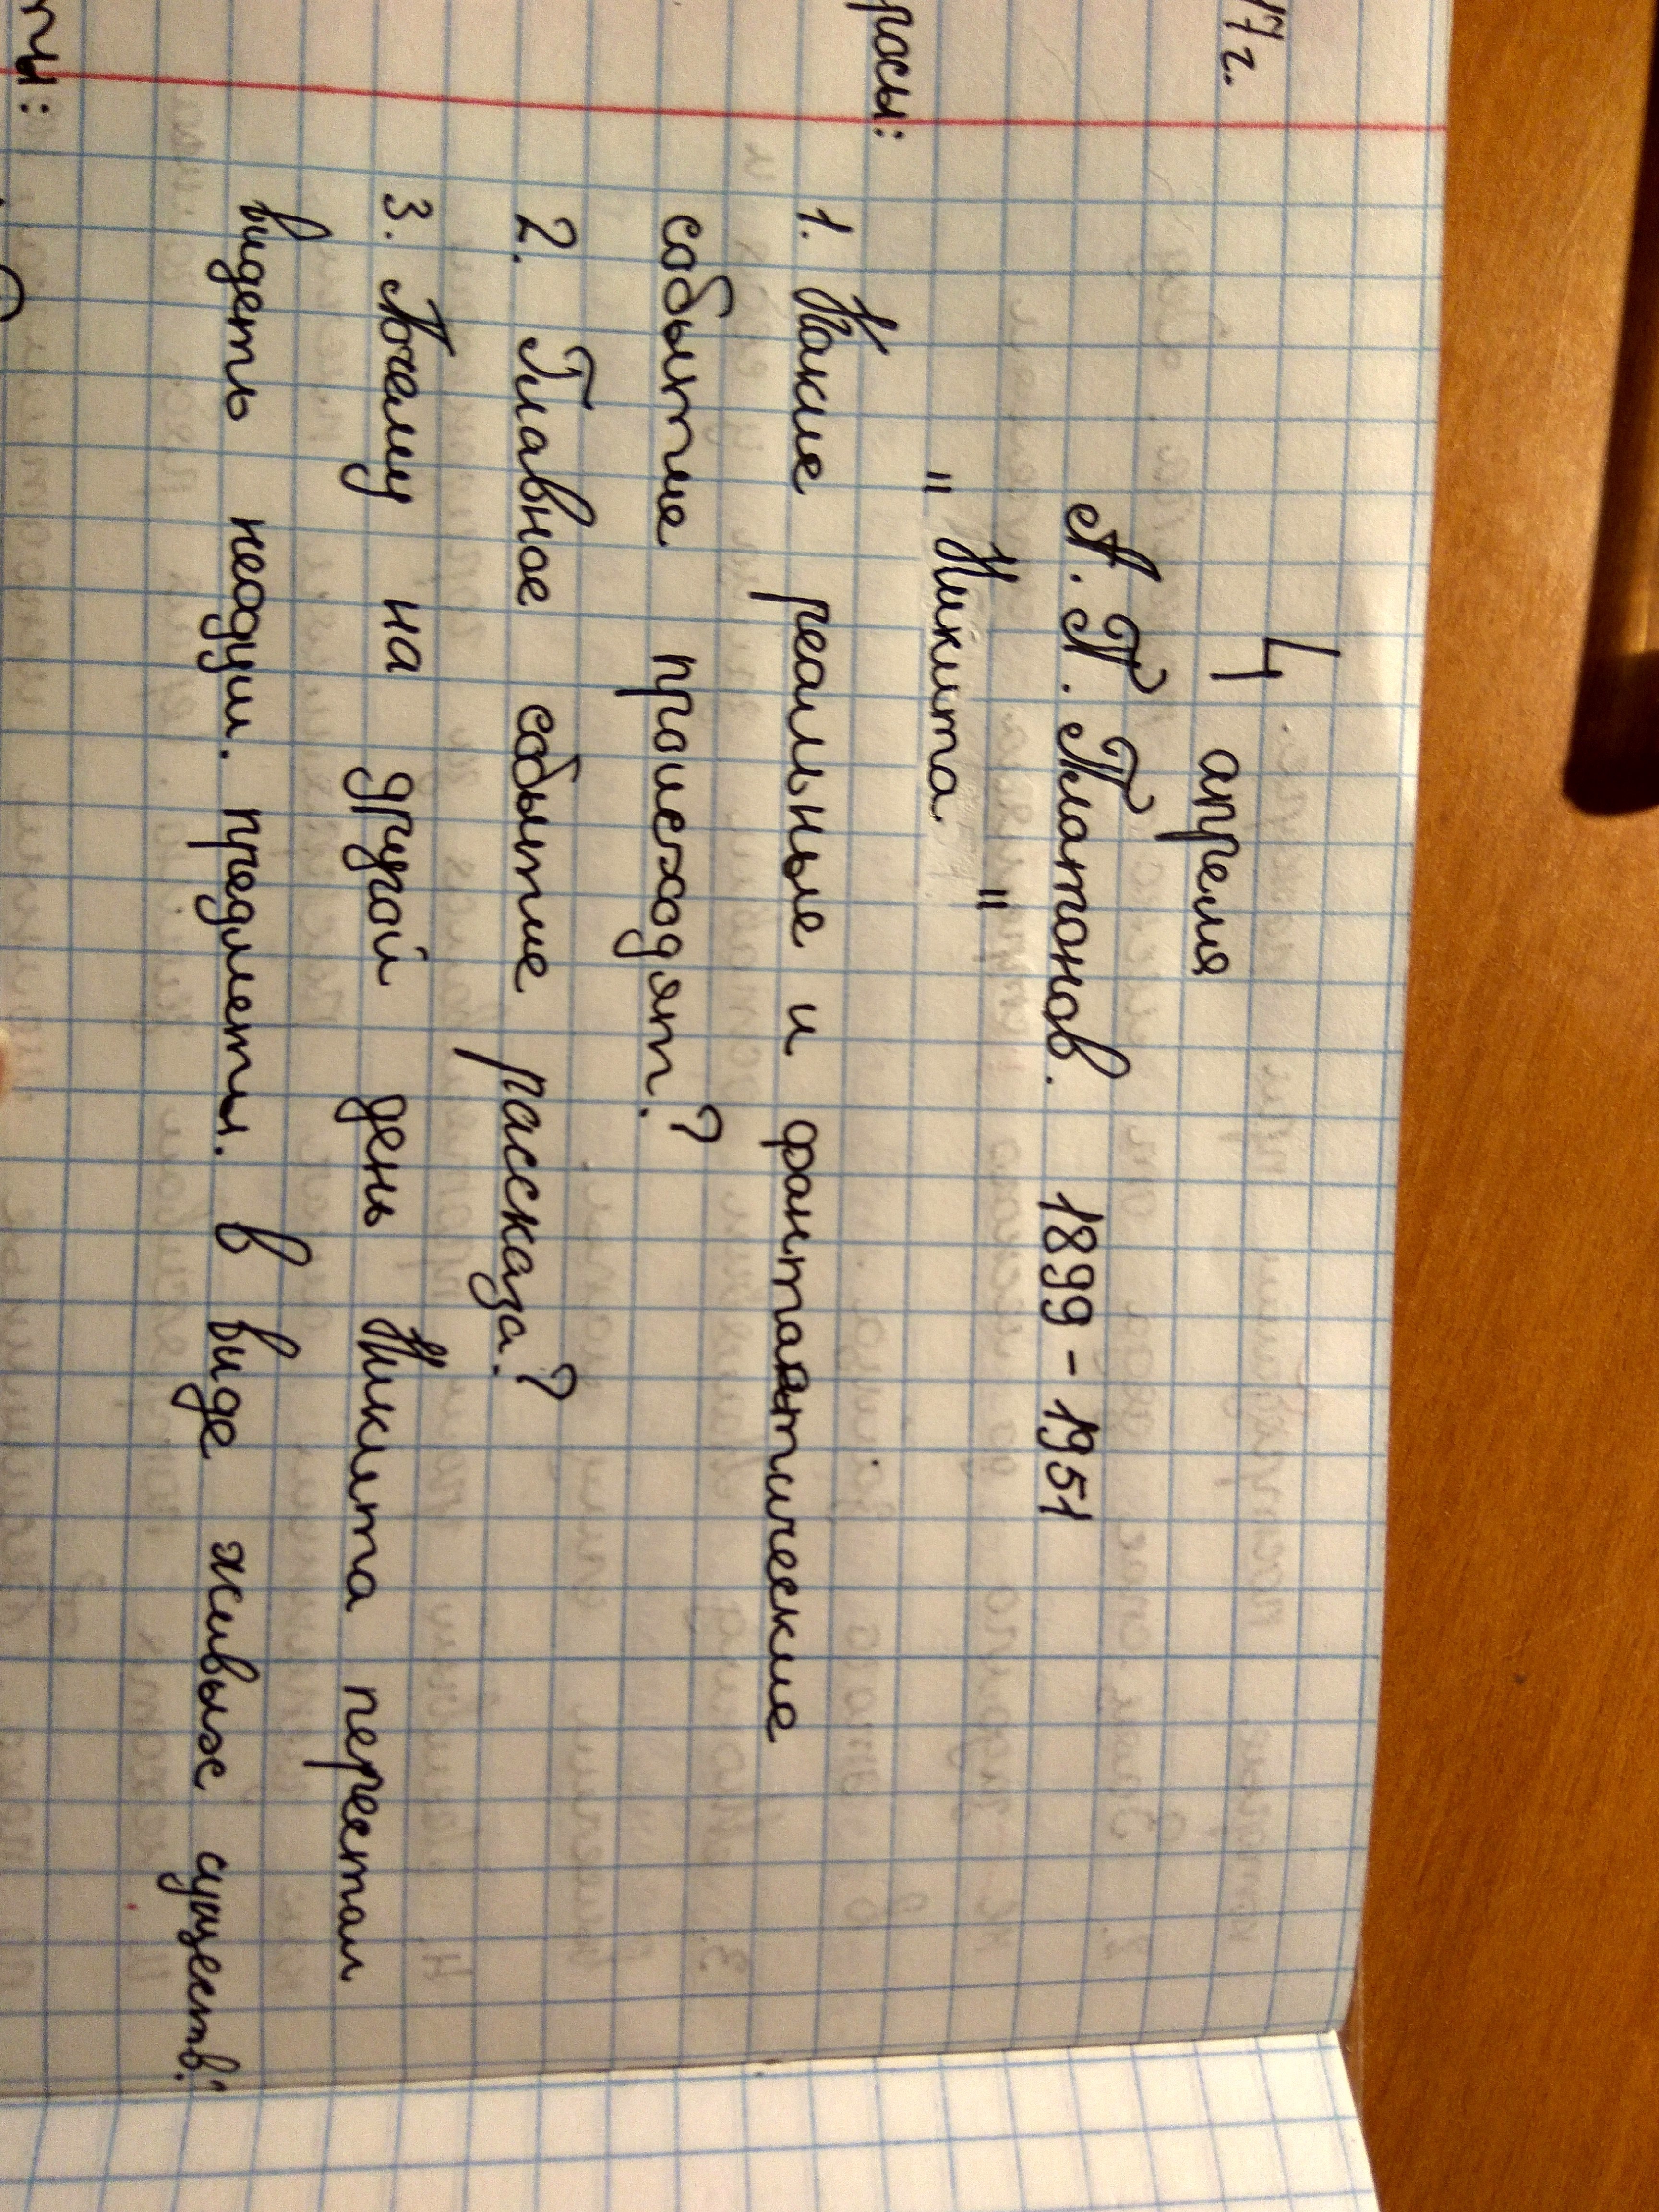 17г.
4 апреля
А. П. Платонов. 1899 - 1951
"Никита."
росы:
1. Какие реальные и фантаатические
событие происходят?
2. Главное событие рассказа?
3. Почему на другой день Никита перестал
видеть неодуш. предметы. в виде живых существ?
ты: